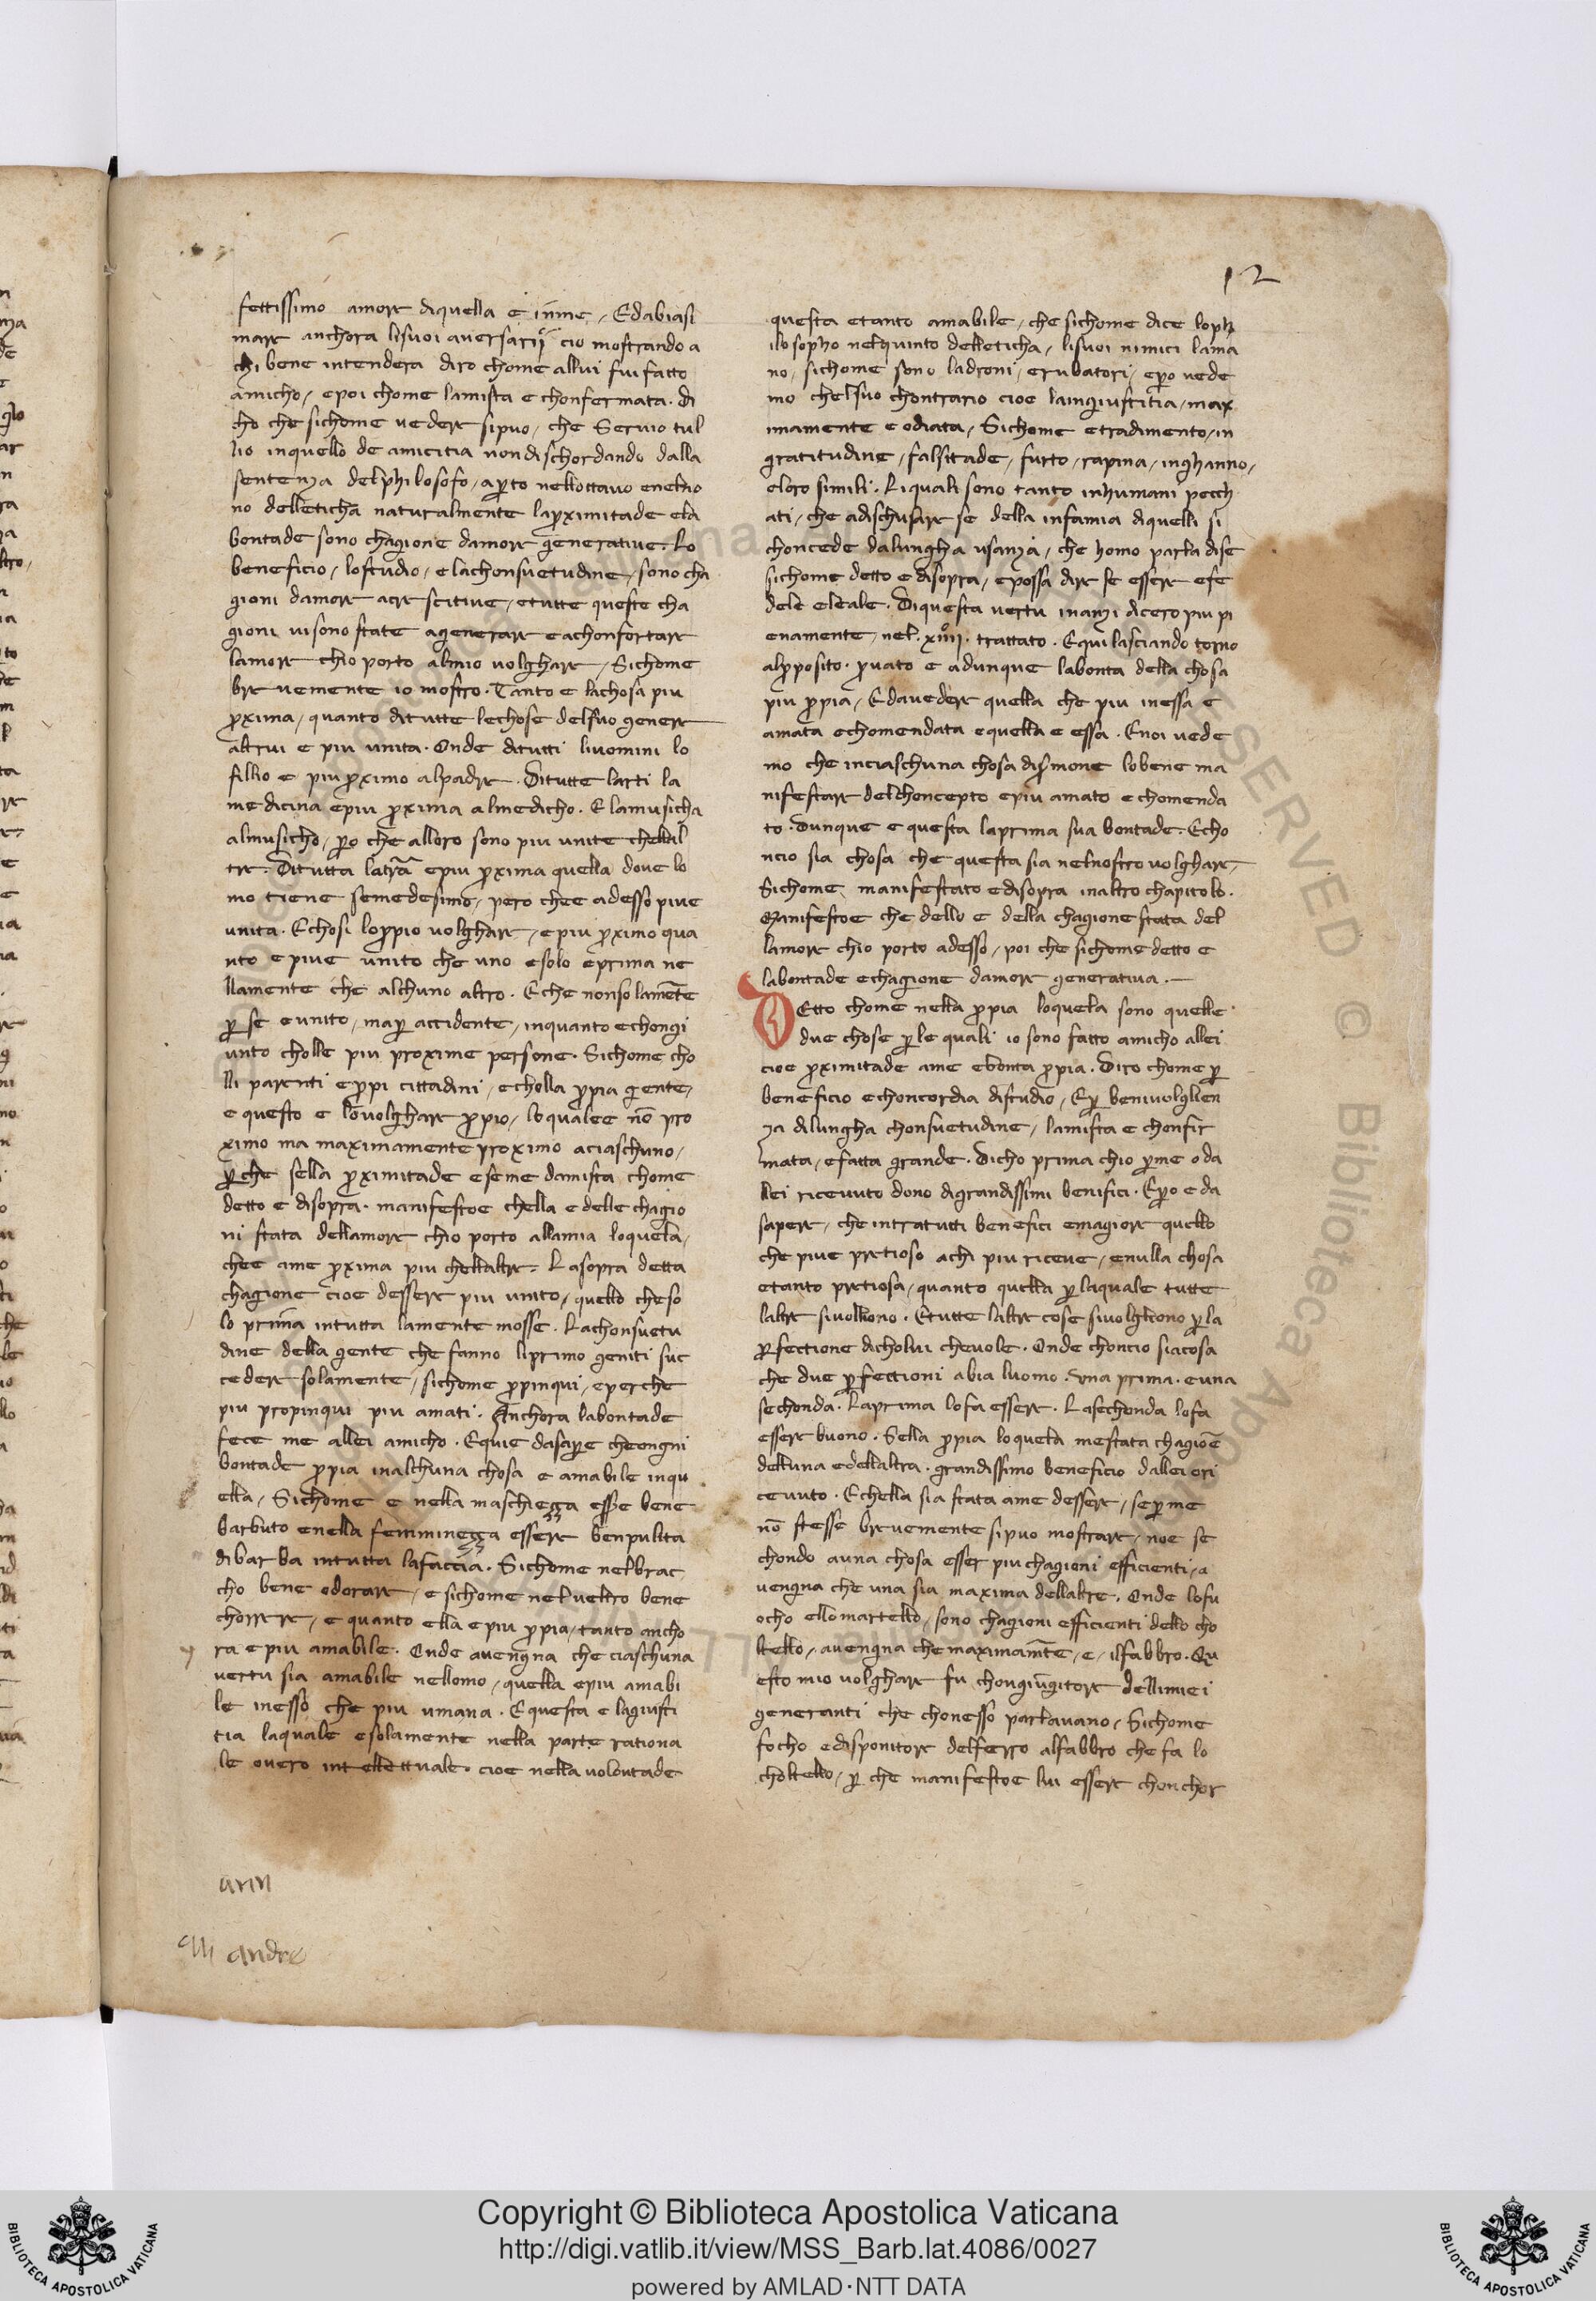 12
fettissimo amore diquella e inme / Edabiasi
mare anchora lisuoi aversarij cio mostrando a
chi bene intendera diro chome allui fui fatto
amicho / epoi chome lamista e chonfermata . di
cho che sichome vedere sipuo / che Servio tul
lio inquello de amicitia nondischordando dalla
sentenza delphilosofo / ap̱to nellottavo enelno
no delleticha naturalmente lap̱ximitade ela
bontade sono chagione damore generative . Lo
beneficio / lostudio / e lachonsuetudine / sono cha
gioni damore acrescitive / etutte queste cha
gioni visono state agenerare eachonfortare
lamore chio porto almio volghare / Sichome
breve mente io mostro . Tanto e lachosa piu
p̱xima / quanto ditutte lechose delsuo genere
altrui e piu unita . Onde ditutti livomini lo
fillio e piu p̱ximo alpadre . Ditutte larti la
medicina epiu p̱xima almedicho . E lamusicha
almusicho / ꝑo che alloro sono piu unite chellal
tre . Ditutta latr̄a epiu p̱xima quella dove lo
mo tiene semedesimo / pero chee adesso piue
unita . Echosi lop̱pio volghare / epiu p̱ximo qua
nto epiue unito che uno esolo eprima ne
llamente che alchuno altro . Eche nonsolamēte
ꝑ se e unito / maꝑ accidente / inquanto echongi
unto cholle piu proxime persone . Sichome cho
lli parenti ep̱pi cittadini / echolla p̱pia gente /
e questo e lovolghare p̱pio / loqualee nō pro
ximo ma maximamente proximo aciaschuno /
ꝑ che sella p̱ximitade eseme damista chome
detto e disopra . manifestoe chella e delle chagio
ni stata dellamore chio porto allamia loquela /
chee ame p̱xima piu chellaltre . Lasopra detta
chagione cioe dessere piu unito / quello cheso
lo prima intutta lamente mosse . Lachonsuetu
dine della gente che fanno liprimo geniti suc
cedere solamente / sichome p̱pinqui / eperche
piu propinqui piu amati . Anchora labontade
fece me allei amicho . Equie dasaꝑe cheongni
bontade p̱pia inalchuna chosa e amabile inqu
ella / Sichome e nella maschiezza essẹre bene
barbuto enella femminezza essere benpulita
dibarba intutta lafaccia . Sichome nelbrac
cho bene odorare / e sichome nelveltro bene
chorrere / e quanto ella epiu p̱pia / tanto ancho
ra epiu amabile . Onde avengna che ciaschuna
vertu sia amabile nellomo / quella epiu amabi
le inesso che piu umana . Equesta e lagiusti
tia laquale esolamente nella parte rationa
le overo intellettuale . cioe nella volontade
questa etanto amabile / che sichome dice loph
ilosopho nelquinto delleticha / lisuoi nimici lama
no / sichome sono ladroni / erubatori / eꝑo vede
mo chelsuo chontrario cioe laingiustitia / max
imamente e odiata / Sichome etradimento / in
gratitudine / falsitade / furto / rapina / inghanno /
eloro simili . Liquali sono tanto inhumani pecch
ati / che adischusare se della infamia diquelli si
choncede dalungha usanza / che homo parla dise
sichome detto e disopra / epossa dire se essere efe
dele eleale . Diquesta vertu inanzi dicero piu pi
enamente / nel . xiiij . trattato . Equi lasciando torno
alp̱posito . p̱vato e adunque labonta della chosa
piu p̱pia / Edavedere quella che piu inessa e
amata echomendata equella e essa . Enoi vede
mo che inciaschuna chosa disermone lobene ma
nifestare delchoncepto epiu amato echomenda
to . Dunque e questa laprima sua bontade . Echo
ncio sia chosa che questa sia nelnostro volghare /
Sichome manifestato edisopra inaltro chapitolo .
Manifestoe che dello e della chagione stata del
lamore chio porto adesso / poi che sichome detto e
labontade echagione damore generativa . —
Detto chome nella p̱pia loquela sono quelle
due chose ꝑ le quali io sono fatto amicho allei
cioe p̱ximitade ame ebonta p̱pia . Diro chome ꝑ
beneficio echoncordia distudio / Eꝑ benivolglien
za dilungha chonsuetudine / lamista e chonfir
mata / efatta grande . Dicho prima chio ꝑme o da
llei ricevuto dono digrandissimi benifici . Eꝑo e da
sapere / che intratutti benefici emagiore quello
che piue pretioso achi piu riceve / enulla chosa
etanto pretiosa / quanto quella ꝑ laquale tutte
laltre sivolliono . Etutte laltre cose sivolgliono ꝑ la
ꝑfectione dicholui chevole . Onde choncio siacosa
che due ꝑfectioni abia luomo . una prima . euna
sechonda . Laprima lofa essere . Lasechonda lofa
essere buono . Sella p̱pia loquela mestata chagiōe
delluna edellaltra . grandissimo beneficio dallei o ri
cevuto . Echella sia stata ame dessere / se ꝑ me
nō stesse brevemente sipuo mostrare / noe se
chondo auna chosa esser piu chagioni efficienti / a
vengna che una sia maxima dellaltre . Onde lofu
ocho ellomartello / sono chagioni efficienti dello cho
ltello / avengna che maximamēte / e / ilfabbro . Qu
esto mio volghare fu chongiungitore dellimiei
generanti che chonesso parlavano / Sichome
focho edisponitore delferro alfabbro che fa lo
choltello / ꝑ che manifestoe lui essere chonchor
ann
andre
Copyright © Biblioteca Apostolica Vaticana
http://digi.vatlib.it/view/MSS_Barb.lat.4086/0027
powered by AMLAD·NTT DATA
BIBLIOTECA APOSTOLICA VATICANA
BIBLIOTECA APOSTOLICA VATICANA